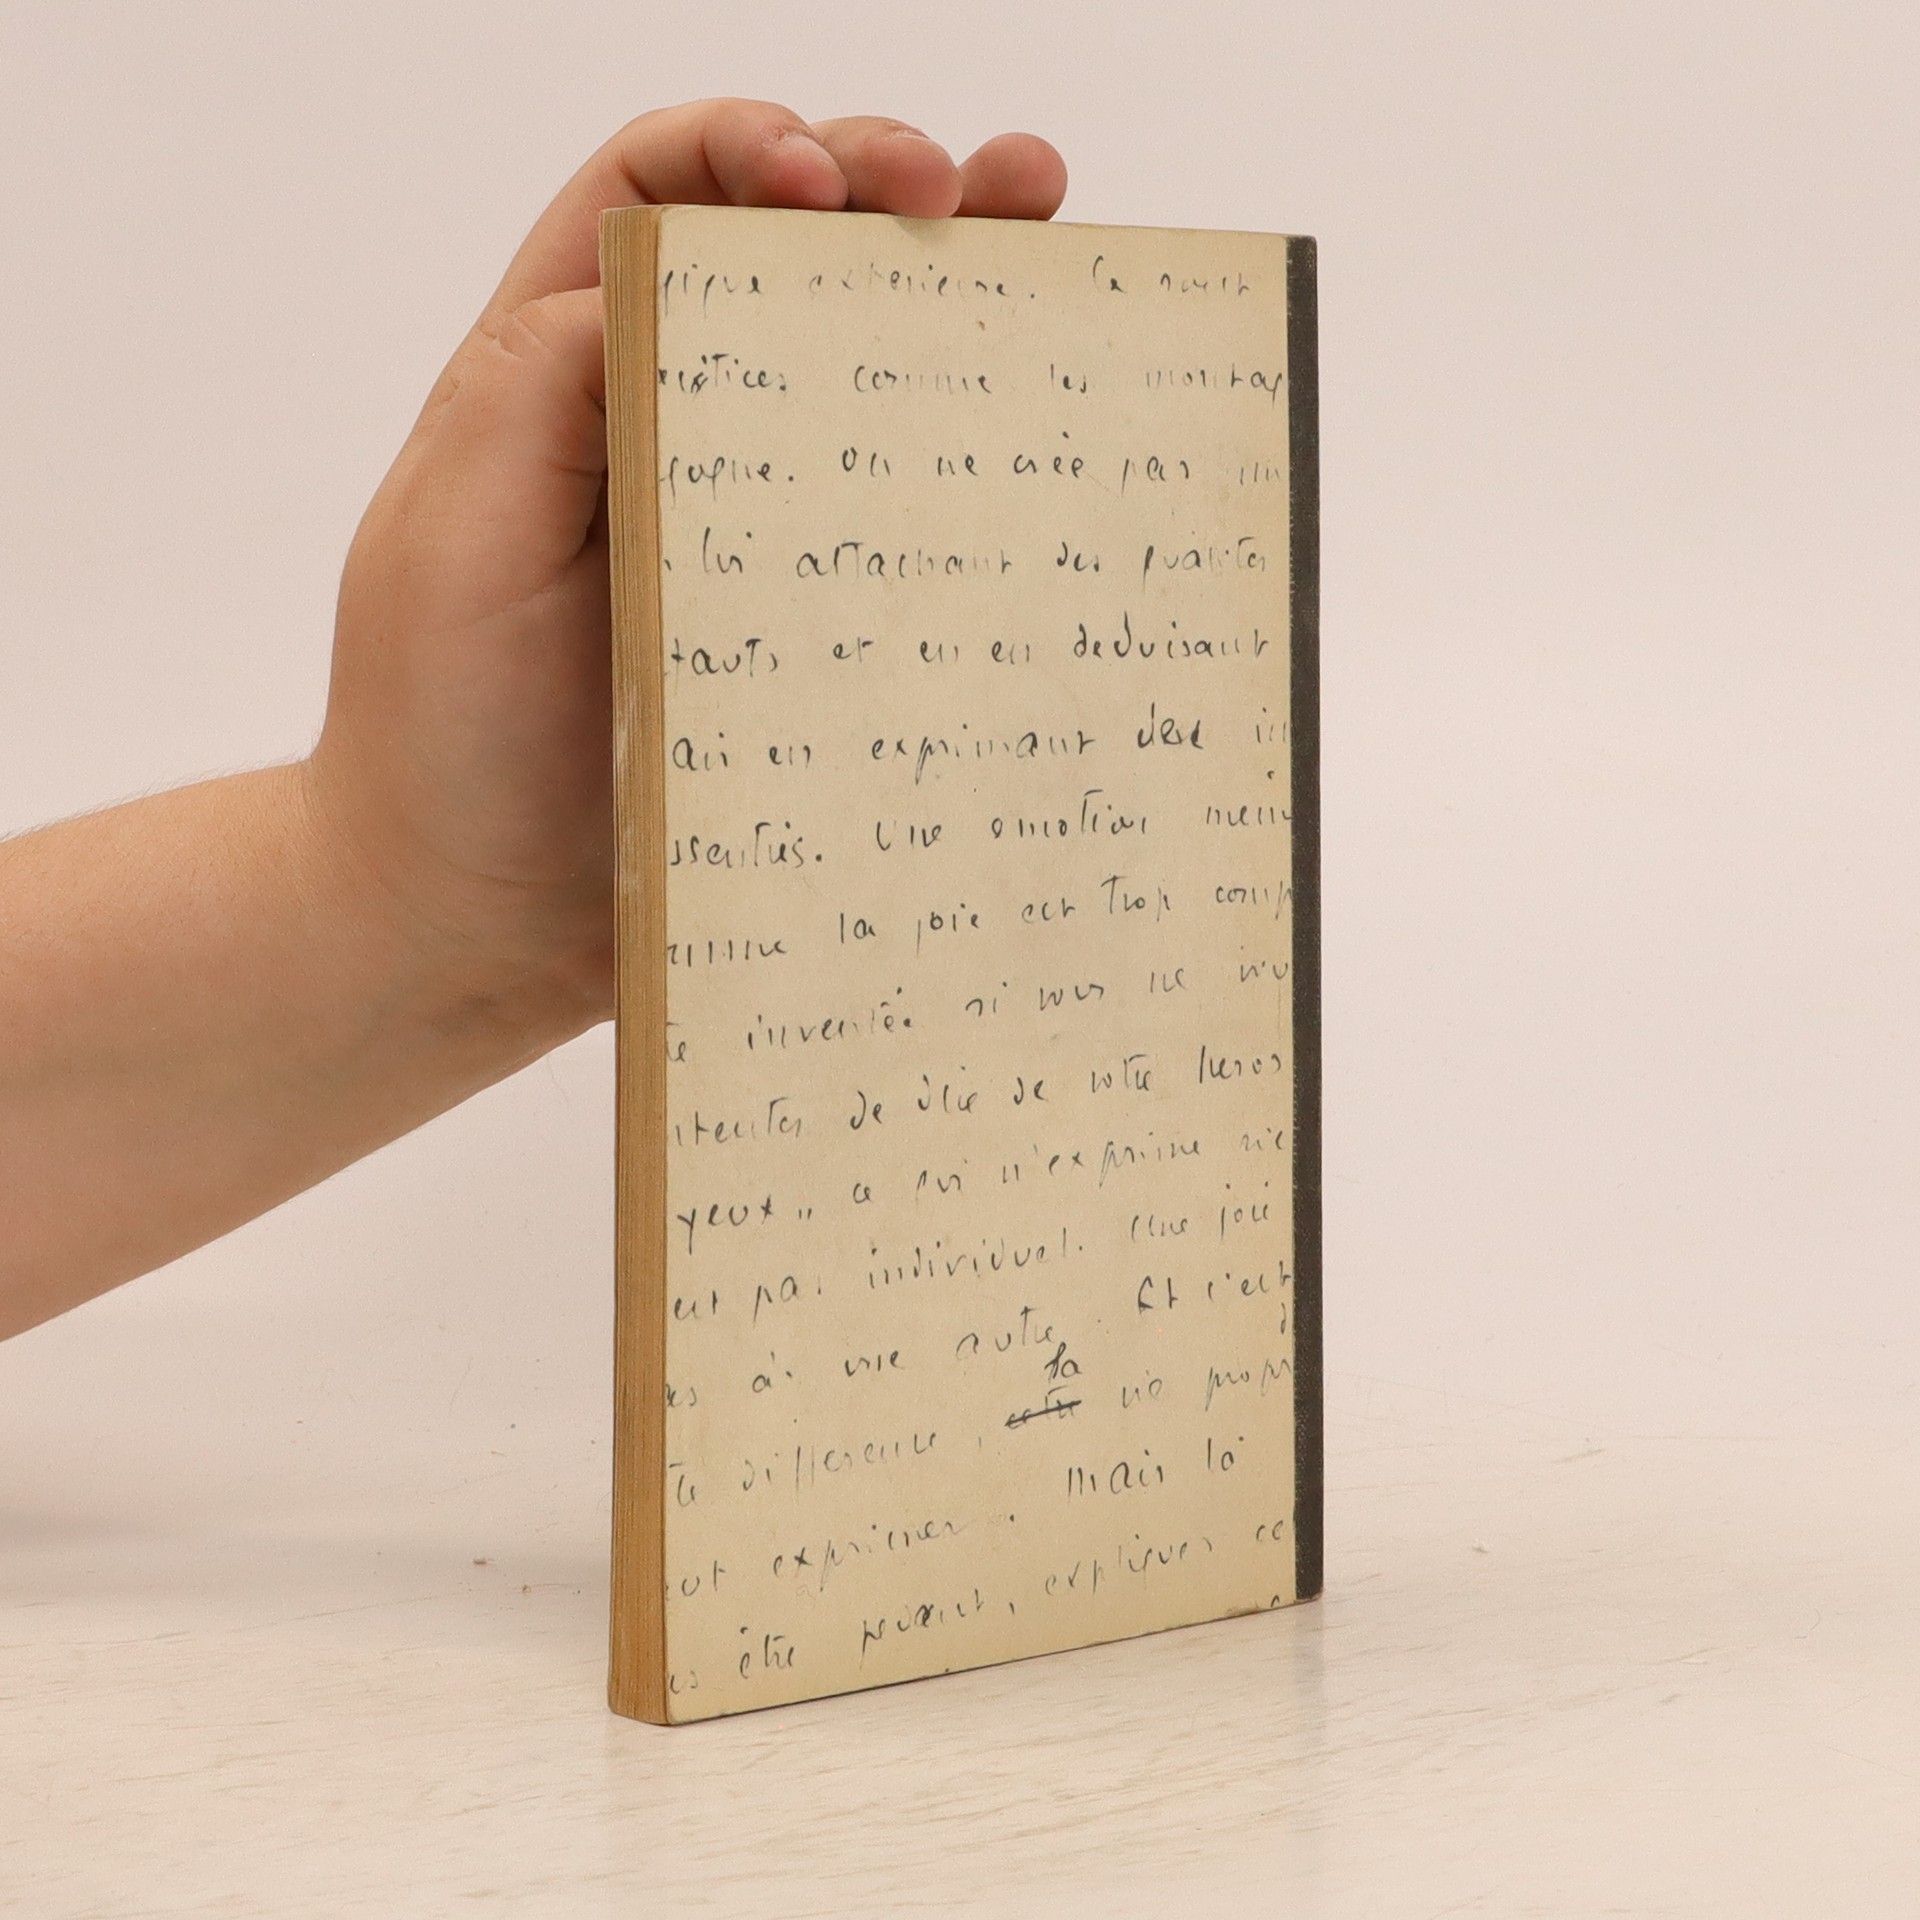 gique exterieure. Ce sont
actices comme les montag
gogne. On ne crée pas un
lui attachant des qualités
fauts et en en deduisant
ais en exprimant des in
ssenties. Une emotion mem
omme la joie est trop comp
te inventée si vous ne vou
ntentes de dire de votre heros
yeux,, ce qui n'exprime rie
est pas individuel. Une joie
es à une autre. Et c'est
te difference, la vie propr
eut exprimer. Mais là
es être pedant, expliquer ce